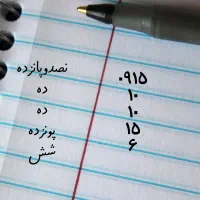 نصدوپانزده ۰۹۱۵
ده ۱۰
ده ۱۰
پونزده ۱۵
شش ۶